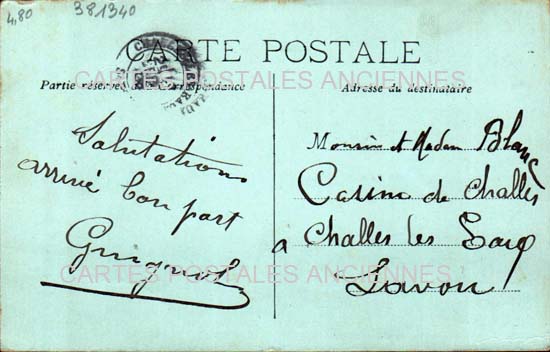 4,80
381340
CARTE POSTALE
Partie réservée Correspondance
Adresse du destinataire
Salutations
arrivé bon port
Guignol
Monsieur et Madam Blanc
Casino de Challes
a Challes les Eaux
Savoie
CARTES POSTALES ANCIENNES
CARTES POSTALES ANCIENNES